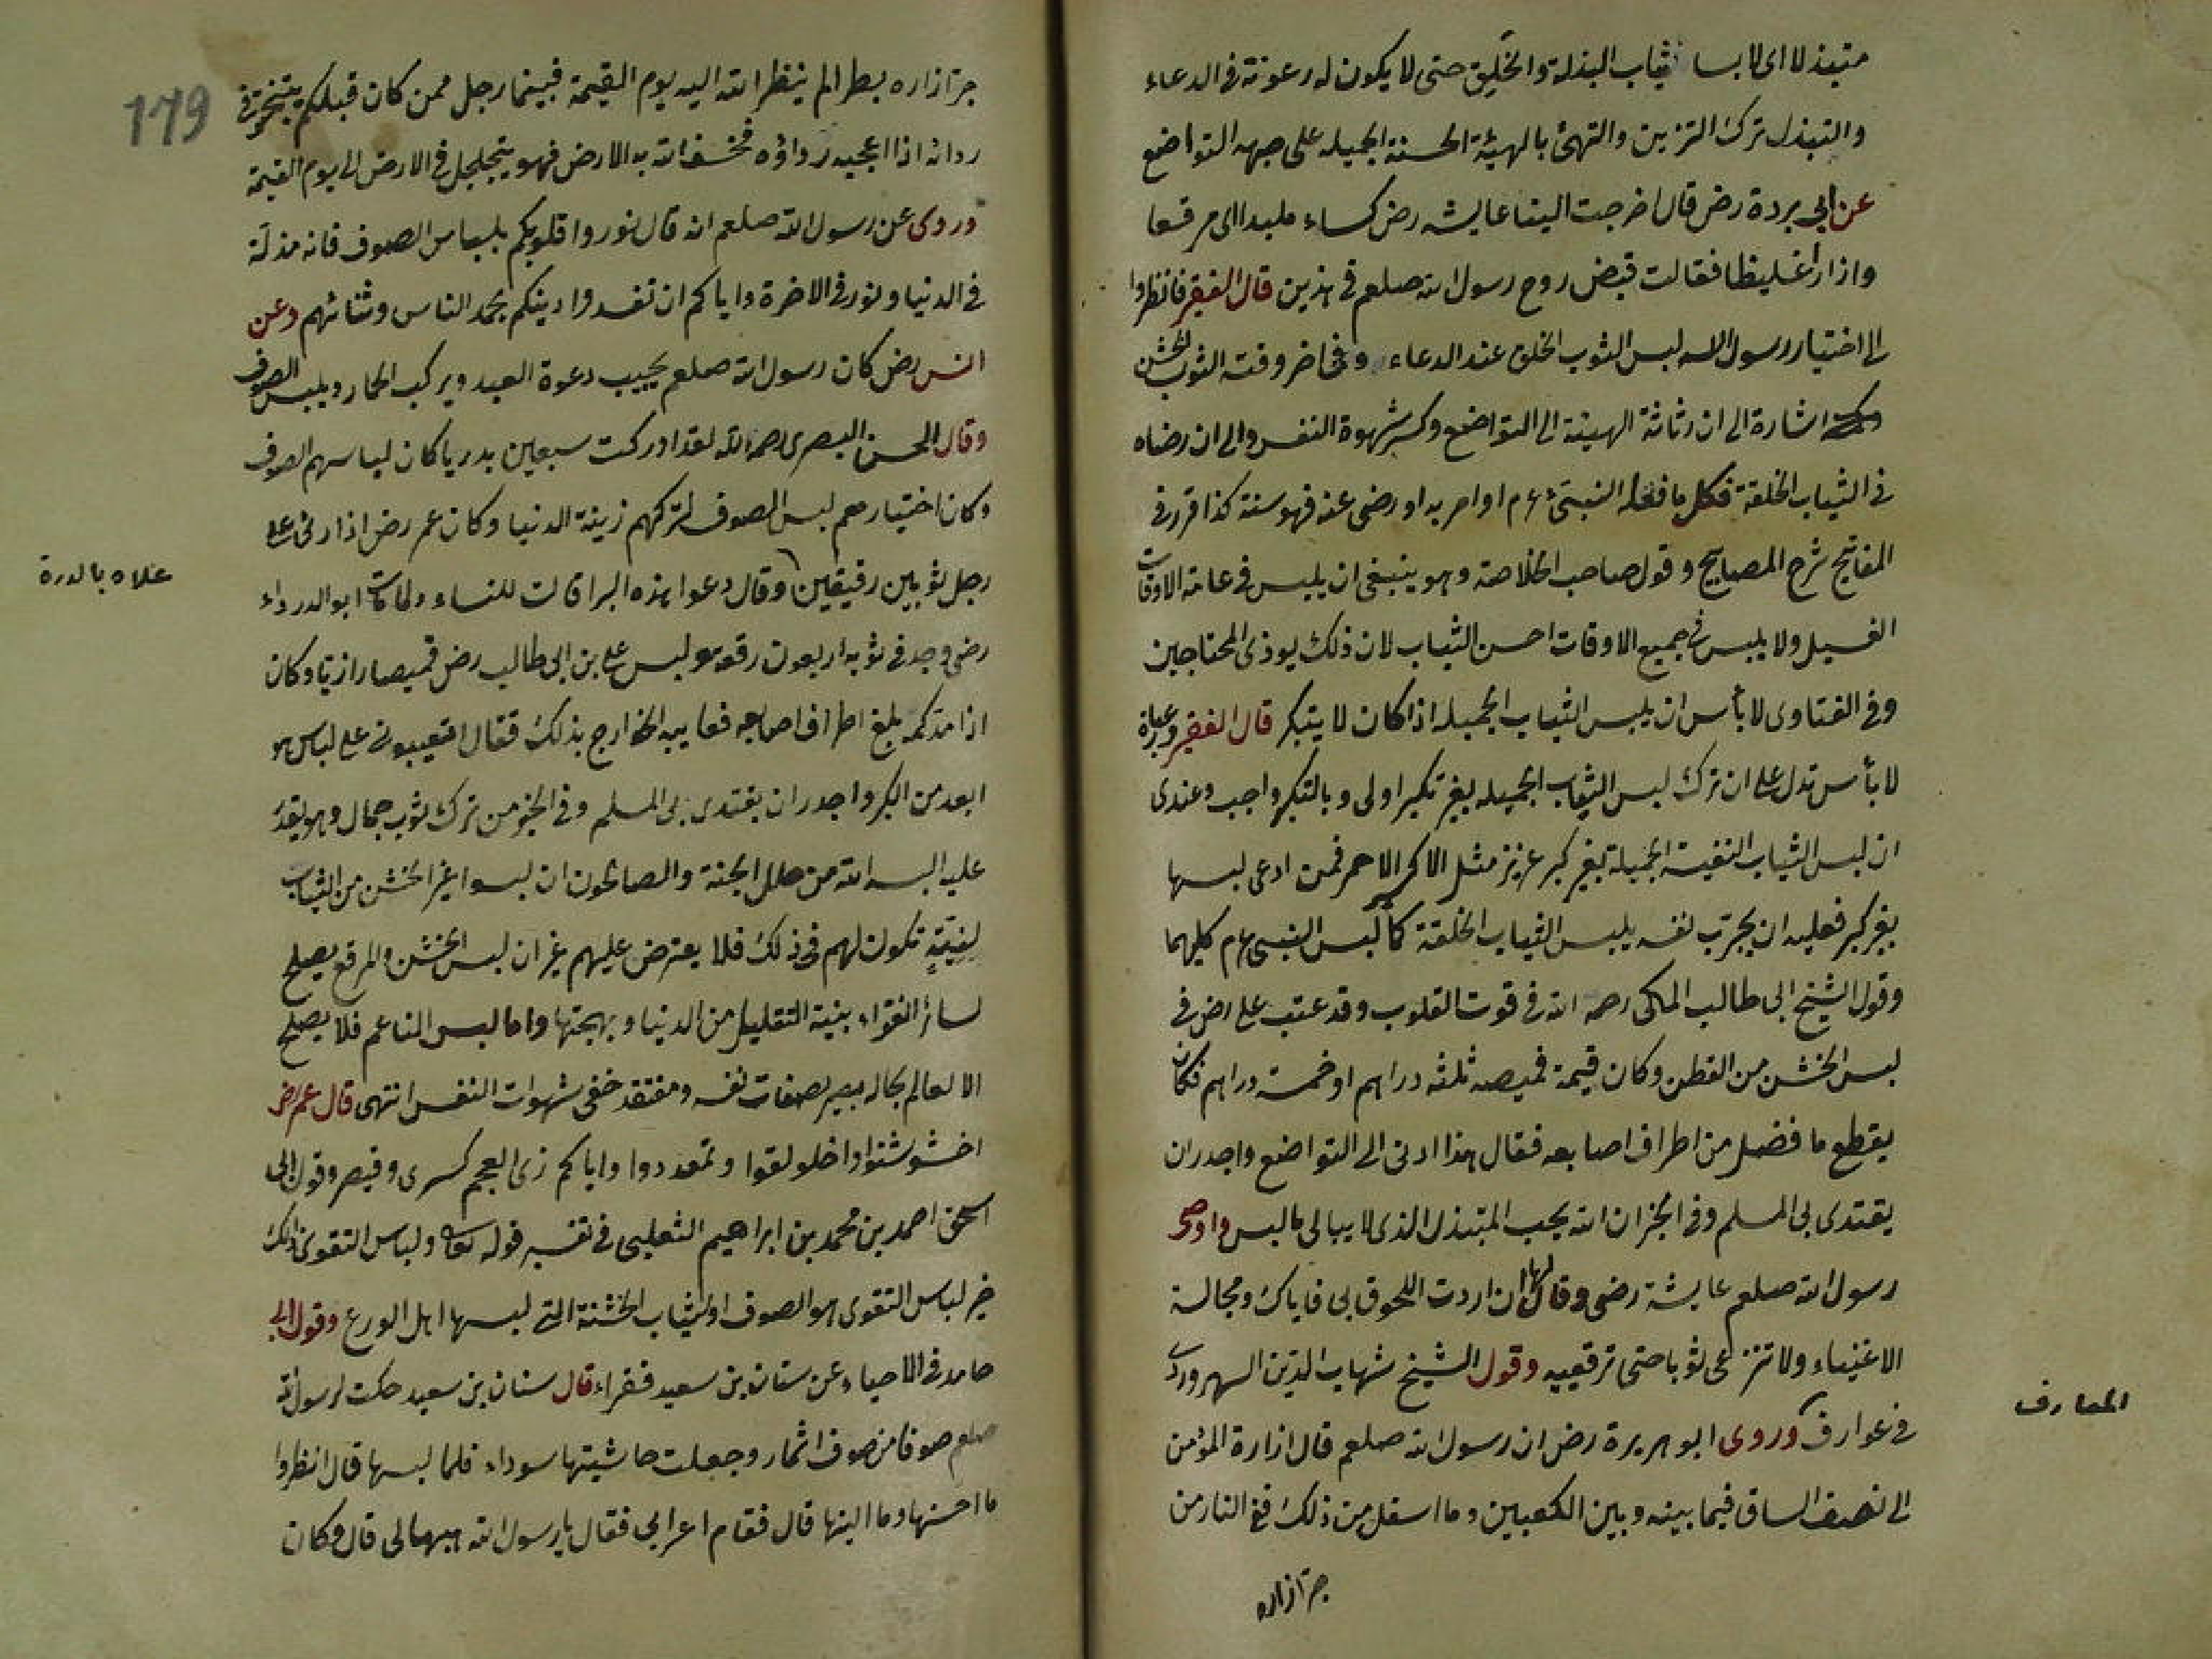 متبذلا اى لابسا ثياب البذلة والخلِق حتى لا يكون له رعونة فى الدعاء
والتبذل ترك التزيين والتهئ بالهيئة الحسنة الجميله على جهه التواضع
عن ابى بردة رض قال اخرجت الينا عايشه رض كساء ملبدا اى مرقعا
وازارا غليظا فقالت قبض روح رسول الله صلعم فى هذين قال الفقير فانظروا
الى اختيار رسول الله لبس الثوب الخلق عند الدعاء وفى اخر وقته الثوب الخشن
اشارة الى ان رثاثة الهيئة الى التواضع وكسر شهوة النفس والى ان رضاه
فى الثياب الخلقة فكل ما فعله النبىّ ءم او امر به او رضى عنه فهو سنة كذا قرر فى
المفاتيح شرح المصابيح وقول صاحب الخلاصة وهو ينبغى ان يلبس فى عامة الاوقات
الغسيل ولا يلبس فى جميع الاوقات احسن الثياب لان ذلك يوذى المحتاجين
وفى الفتاوى لا بأس ان يلبس الثياب الجميله اذا كان لا يتكبر قال الفقير وعبارة
لا بأس تدل على ان ترك لبس الثياب الجميله بغير تكبر اولى وبالتكبر واجب وعندى
ان لبس الثياب النفيسة الجميلة بغير كبر عزيز مثل الاكسير الاحمر فمن ادعى لبسها
بغير كبر فعليه ان يجرّب نفسه يلبس الثياب الخلقة كما لبس النبى ءم كليهما
وقول الشيخ ابى طالب المكى رحمه الله فى قوت القلوب وقد عتب على رض فى
لبس الخشن من القطن وكان قيمة قميصه ثلثه دراهم او خمسة دراهم فكان
يقطع ما فضل من اطراف اصابعه فقال هذا ادنى الى التواضع واجدر ان
يقتدى بى المسلم وفى الخبر ان الله يحب المتبذل الذى لا يبالى ما لبس واوصى
رسول الله صلعم عايشة رضى وقال لها ان اردت اللحوق بى فاياك ومجالسة
الاغنياء ولا تنزعى ثوبا حتى ترقعيه وقول الشيخ شهاب الدين السهروردى
فى عوارف وروى ابو هريرة رض ان رسول الله صلعم قال ازارة المؤمن
الى نصف الساق فيما بينه وبين الكعبين وما اسفل من ذلك ففى النار من
جرّ ازاره
المعارف
179
جرّ ازاره بطرا لم ينظر الله اليه يوم القيمة فبينما رجل ممن كان قبلكم يتبختر فى
ردائه اذا اعجبه رداؤه فخسف الله به الارض فهو يتجلجل فى الارض الى يوم القيمة
وروى عن رسول الله صلعم انه قال نوروا قلوبكم بلباس الصوف فانه مذلة
فى الدنيا ونور فى الاخرة واياكم ان تفسدوا دينكم بحمد الناس وثنائهم وعن
انس رض كان رسول الله صلعم يجيب دعوة العبد ويركب الحمار ويلبس الصوف
وقال الحسن البصرى رحمه الله لقد ادركت سبعين بدريا كان لباسهم الصوف
وكان اختيارهم لبس الصوف لتركهم زينة الدنيا وكان عمر رض اذا رئى على
رجل ثوبين رقيقين وقال دعوا هذه البراقات للنساء ولما مات ابو الدرداء
رضى وجد فى ثوبه اربعون رقعه ولبس على بن ابى طالب رض قميصا رازيا وكان
اذا مد كمه بلغ اطراف اصابعه فعابه الخوارج بذلك فقال اتعيبونى على لباس هو
ابعد من الكبر واجدر ان يقتدى بى المسلم وفى الخبر من ترك ثوب جمال وهو يقدر
عليه البسه الله من حلل الجنة والصالحون ان لبسوا غير الخشن من الثياب
لِنِيّةٍ تكون لهم فى ذلك فلا يعترض عليهم غير ان لبس الخشن والمرقع يصلح
لسائر الفقراء بنية التقليل من الدنيا وبهجتها واما لبس الناعم فلا يصلح
الا لعالم بحاله بصير بصفات نفسه ومتفقد خفى شهوات النفس انتهى قال عمر رض
اخشوشنوا واخلولقوا وتمعددوا واياكم زى العجم كسرى وقيصر وقول ابى
اسحق احمد بن محمد بن ابراهيم الثعلبى فى تفسير قوله تعالى ولباس التقوى ذلك
خير لباس التقوى هو الصوف او الثياب الخشنة التى لبسها اهل الورع وقول ابى
حامد فى الاحياء عن سنان بن سعيد فقراء قال سنان بن سعيد حكت لرسول الله
صلعم صوفا من صوف انمار وجعلت حاشيتها سوداء فلما لبسها قال انظروا
ما احسنها وما الينها قال فقام اعرابى فقال يا رسول الله هبها لى قال وكان
علاه بالدرة